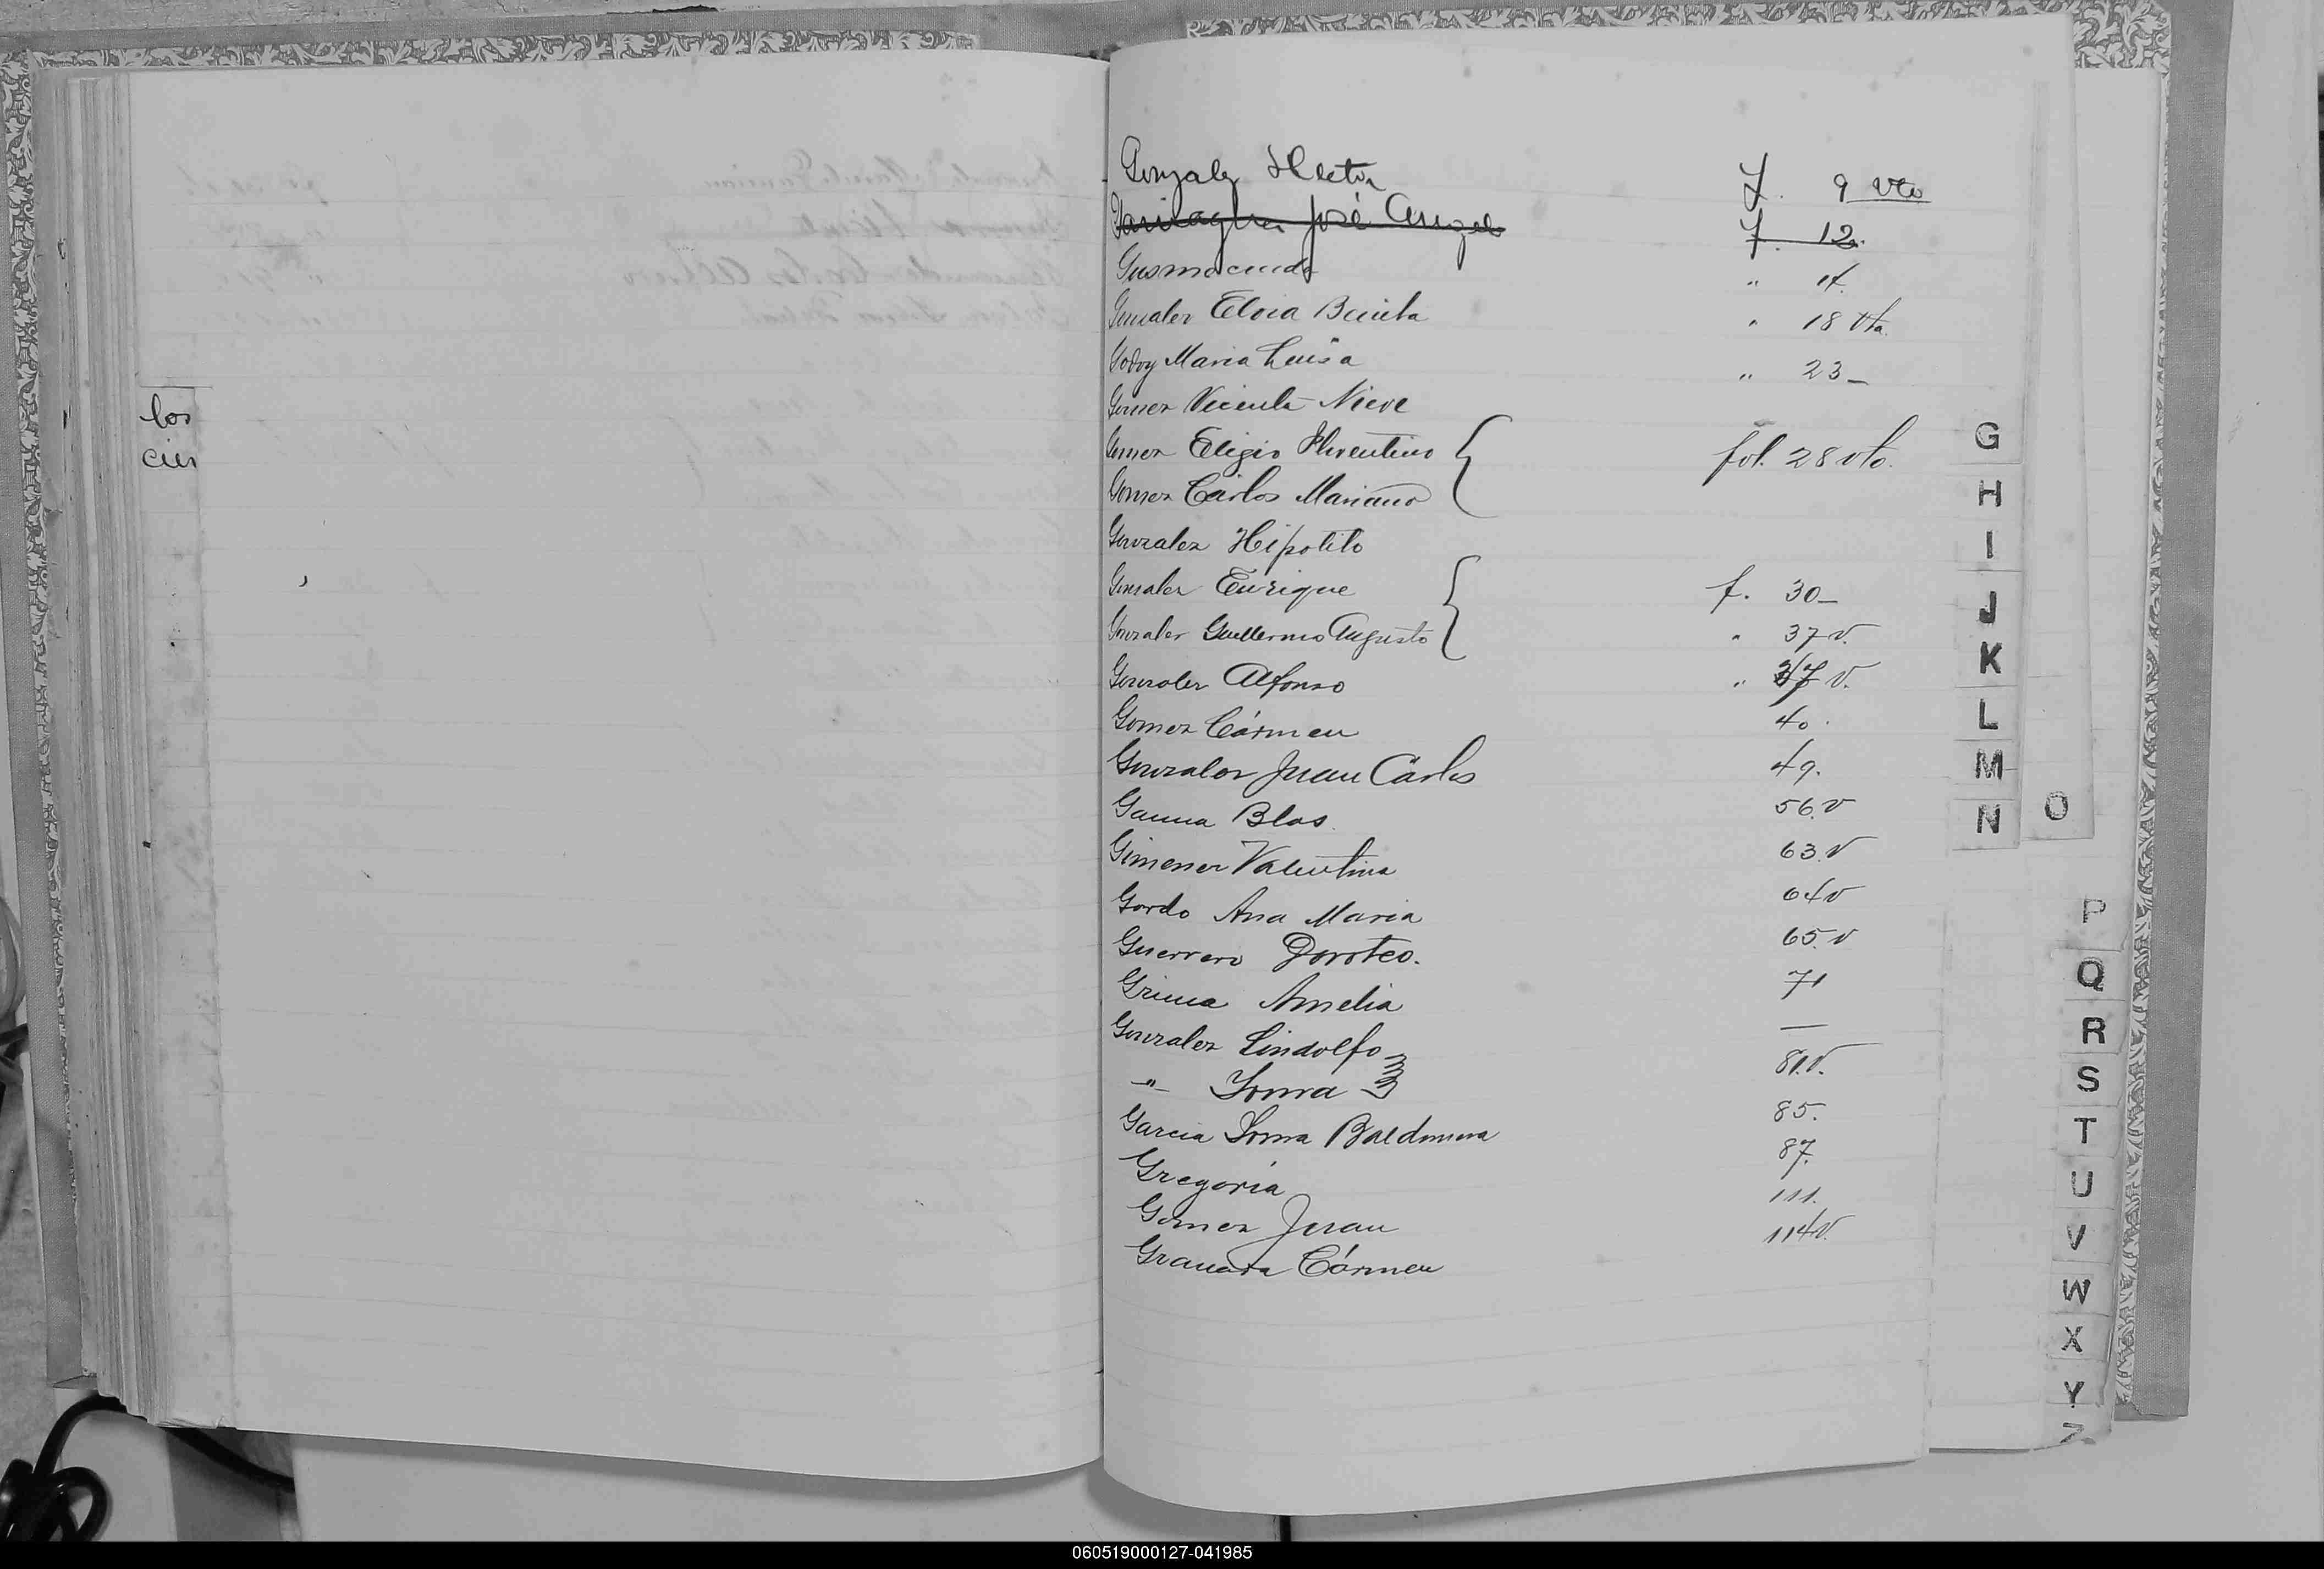 los
cier
Gonzalez Hector f. 9 vto
José Angel f. 12.
"
Gonzalez Elvia Benita " 18 vta.
Godoy Maria Luisa " 23_
Gomez Vicenta Nieve
Gomez Eligio Florentino { fol. 28 vto.
Gomez Carlos Mariano
Gonzalez Hipolito
Gonzalez Enrique { f. 30_
Gonzalez Guillermo Augusto " 37 v.
Gonzalez Alfonso " 37 v.
Gomez Cármen 40.
Gonzalez Juan Carlos 49.
Gauna Blas. 56.v
Gimenez Valentina 63.v
Gordo Ana Maria 64v
Guerrero Doroteo. 65.v
Grima Amelia 71
Gonzalez Lindolfo —
-"- 81.v.
Garcia 85.
Gregoria 87.
Gomez Juan 111.
Granata Cármen 114v.
G
H
I
J
K
L
M
N
O
P
Q
R
S
T
U
V
W
X
Y
Z
060519000127-041985